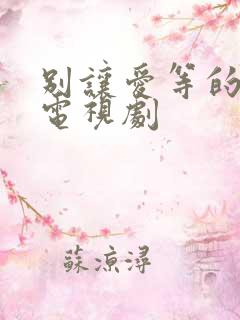 別讓愛等的
電視劇
蘇涼潯